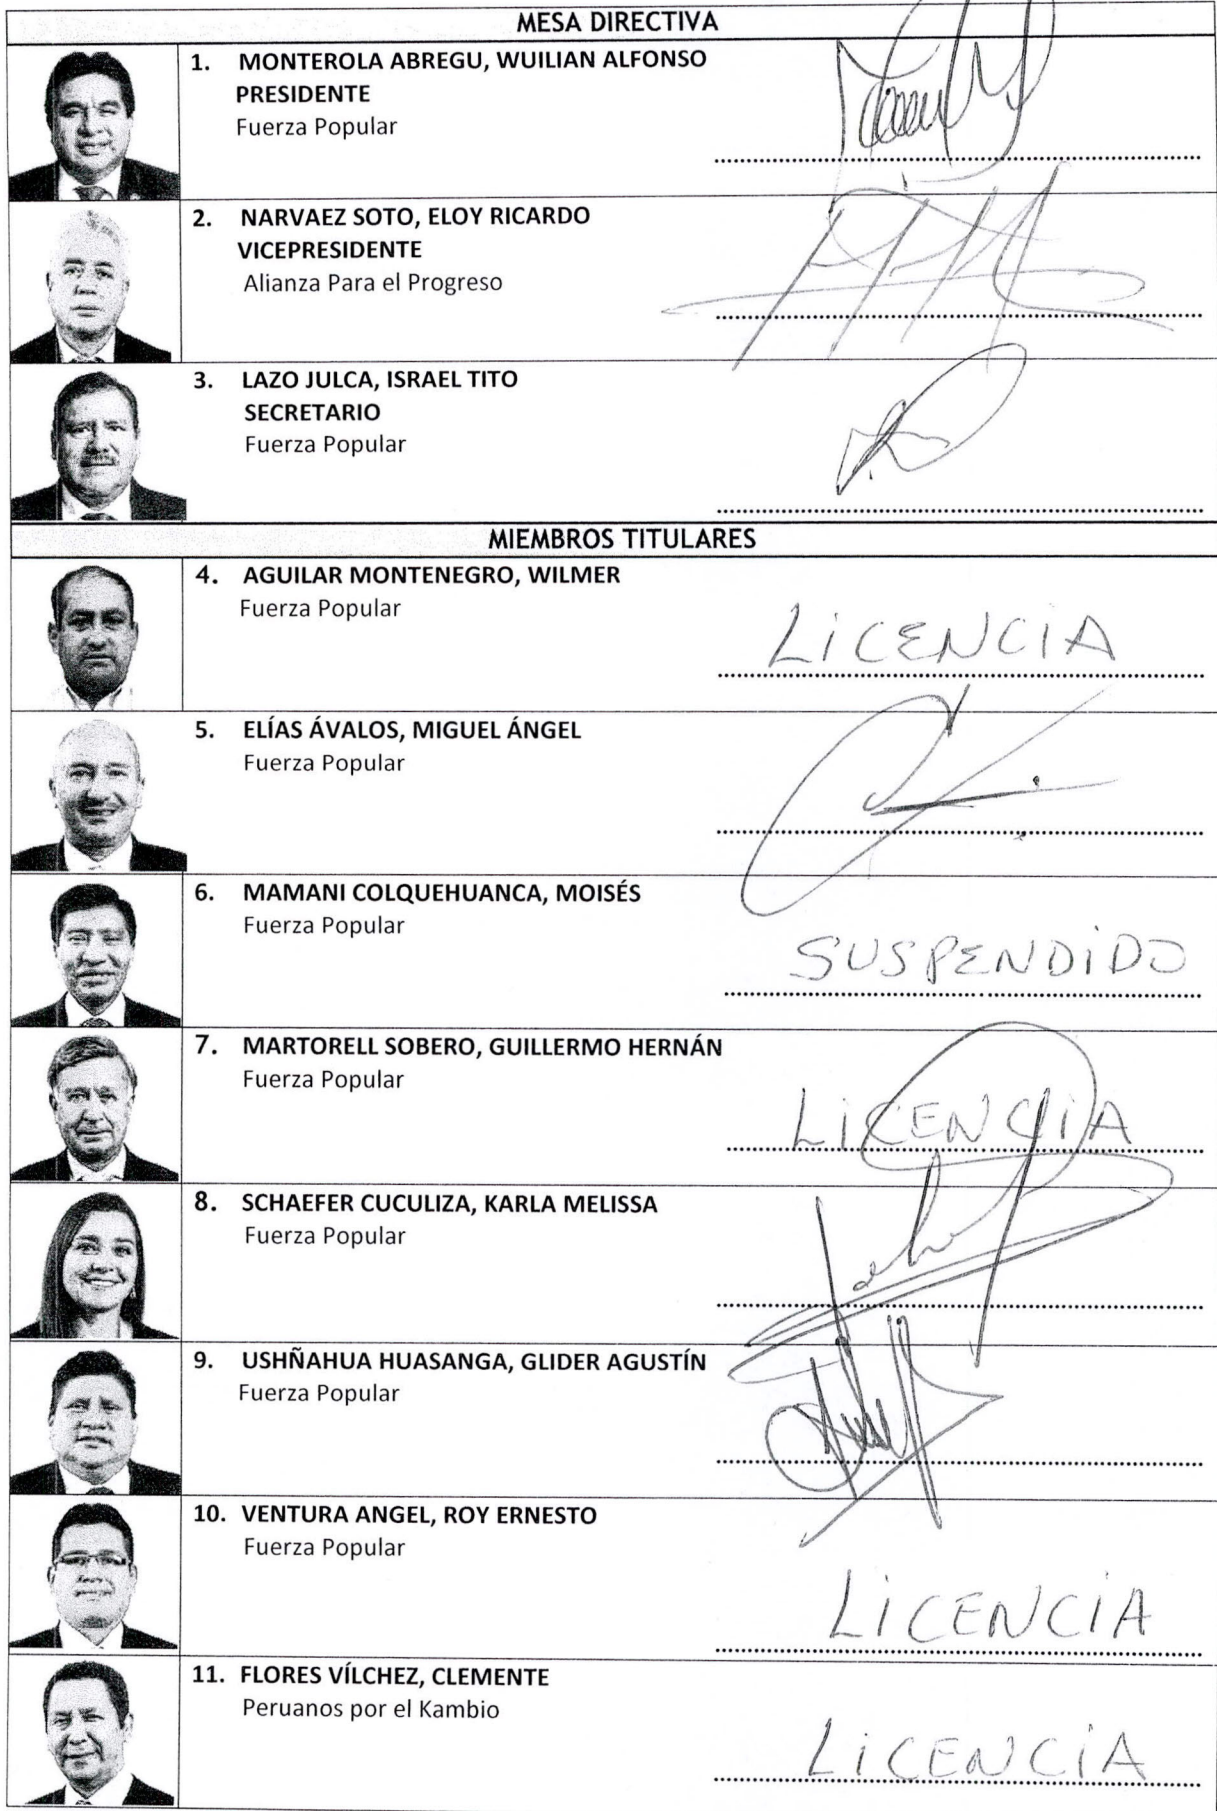 MESA DIRECTIVA
1. MONTEROLA ABREGU, WUILIAN ALFONSO
PRESIDENTE
Fuerza Popular
2. NARVAEZ SOTO, ELOY RICARDO
VICEPRESIDENTE
Alianza Para el Progreso
3. LAZO JULCA, ISRAEL TITO
SECRETARIO
Fuerza Popular
MIEMBROS TITULARES
4. AGUILAR MONTENEGRO, WILMER
Fuerza Popular
LICENCIA
5. ELÍAS ÁVALOS, MIGUEL ÁNGEL
Fuerza Popular
6. MAMANI COLQUEHUANCA, MOISÉS
Fuerza Popular
SUSPENDIDO
7. MARTORELL SOBERO, GUILLERMO HERNÁN
Fuerza Popular
LICENCIA
8. SCHAEFER CUCULIZA, KARLA MELISSA
Fuerza Popular
9. USHÑAHUA HUASANGA, GLIDER AGUSTÍN
Fuerza Popular
10. VENTURA ANGEL, ROY ERNESTO
Fuerza Popular
LICENCIA
11. FLORES VÍLCHEZ, CLEMENTE
Peruanos por el Kambio
LICENCIA